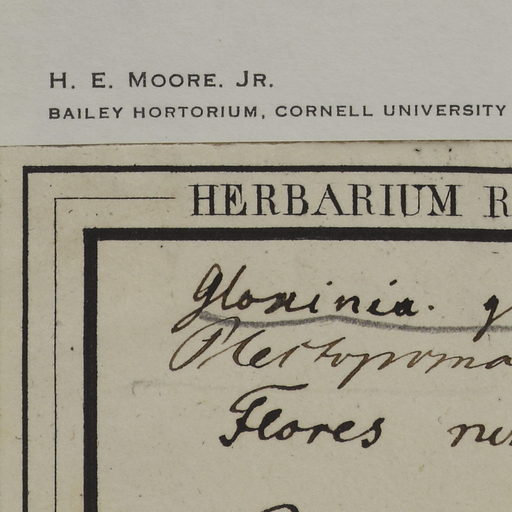 H. E. MOORE, JR.
BAILEY HORTORIUM, CORNELL UNIVERSITY
HERBARIUM R
Gloxinia. g
Plectopoma
Flores